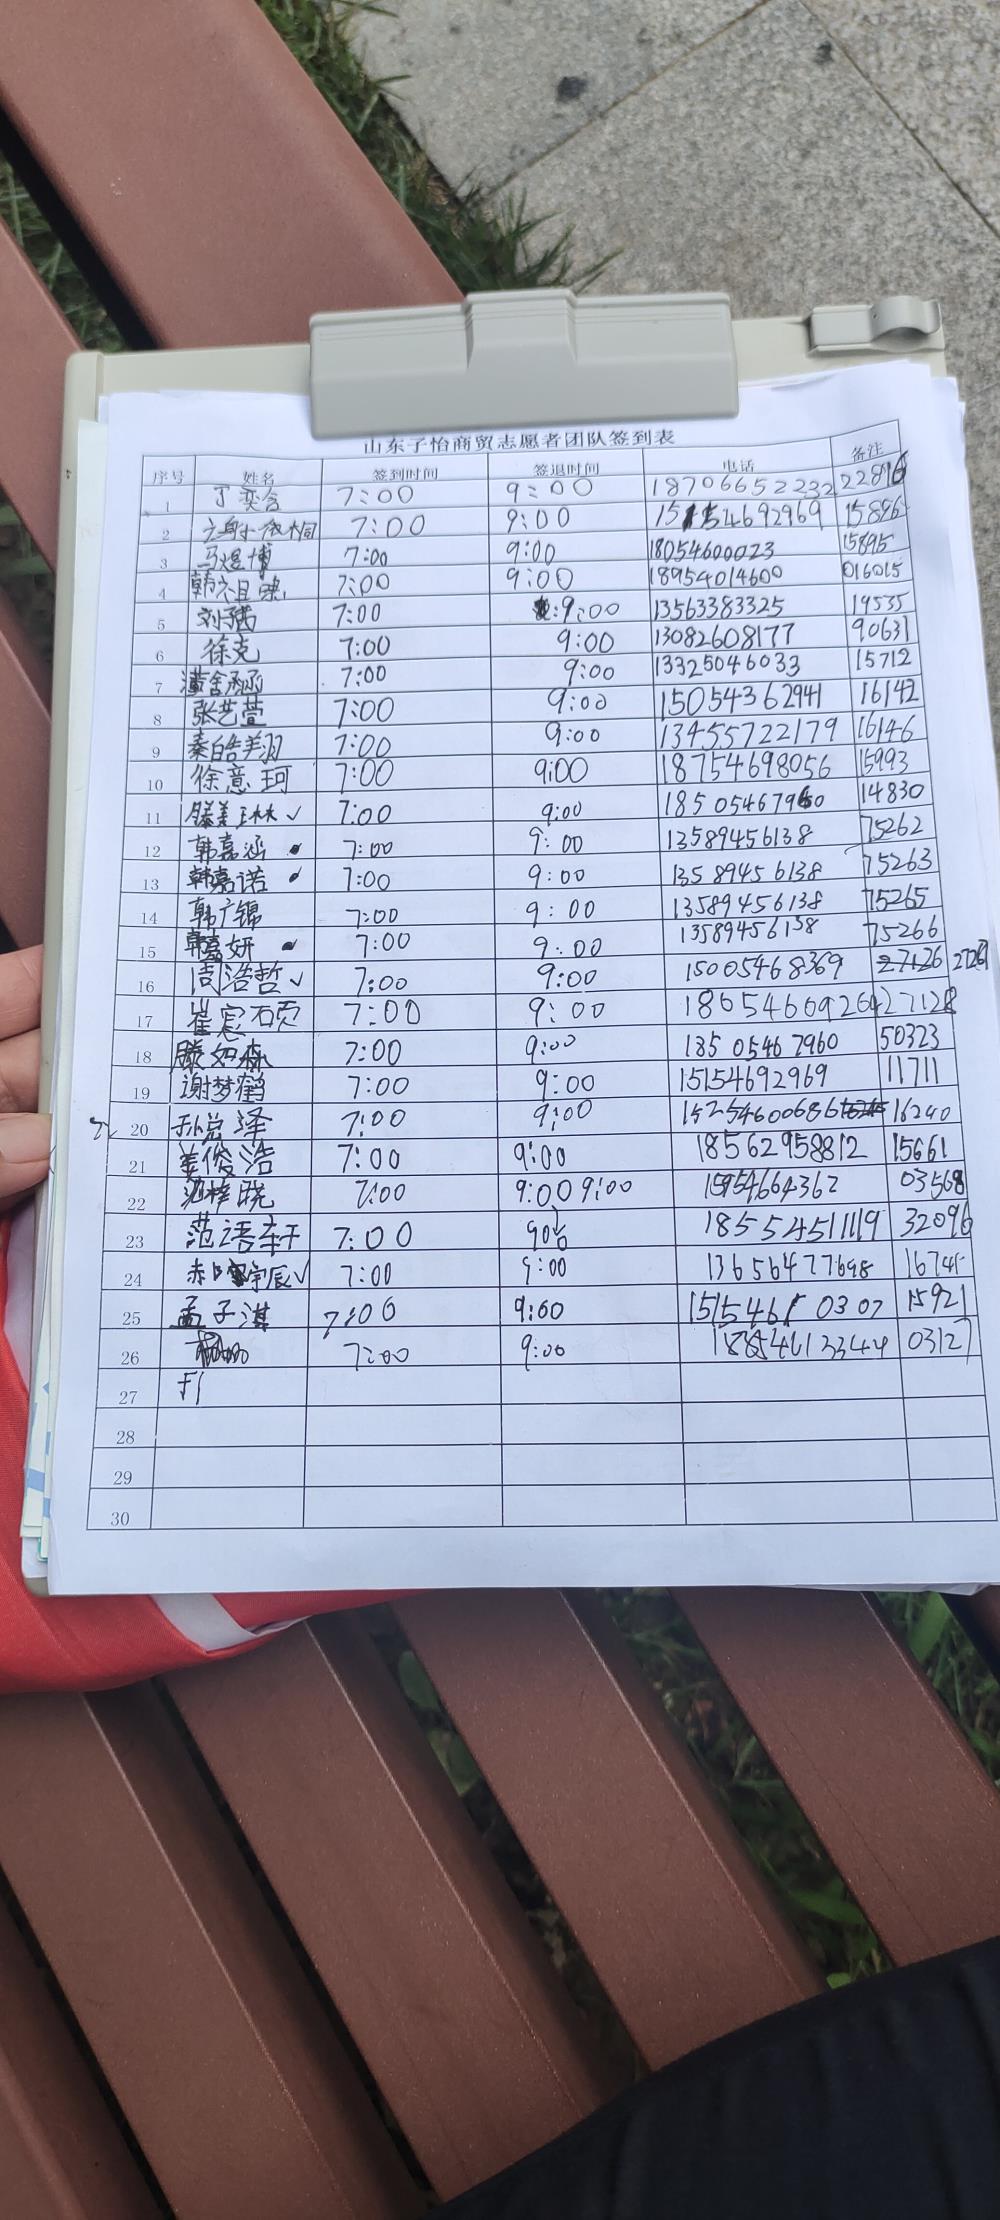 山东子怡商贸志愿者团队签到表
序号 姓名 签到时间 签退时间 电话 备注
1 丁奕含 7:00 9:00 18706652232
2 7:00 9:00 15154692969 15896
3 马煜博 7:00 9:00 18054600023 15895
4 韩 7:00 9:00 18954014600 016015
5 7:00 9:00 13563383325 19535
6 徐克 7:00 9:00 13082608177 90631
7 7:00 9:00 13325046033 15712
8 张艺萱 7:00 9:00 15054362941 16142
9 秦皓美羽 7:00 9:00 13455722179 16146
10 徐意珂 7:00 9:00 18754698056 15993
11 滕美琳 ✓ 7:00 9:00 18505467960 14830
12 韩嘉涵 7:00 9:00 13589456138 75262
13 韩嘉诺 7:00 9:00 13589456138 75263
14 韩广锦 7:00 9:00 13589456138 75265
15 韩嘉妍 7:00 9:00 13589456138 75266
16 周浩哲 ✓ 7:00 9:00 15005468369
17 崔宸硕 7:00 9:00 18654609264 27128
18 滕如森 7:00 9:00 18505467960 50323
19 谢梦鹤 7:00 9:00 15154692969 11711
20 孙 泽 7:00 9:00 15254600686 16240
21 姜俊浩 7:00 9:00 18562958812 15661
22 7:00 9:00 9:00 15954664362 03568
23 范语轩 7:00 18554511119 32096
24 宇辰 ✓ 7:00 9:00 13656477698
25 孟子淇 7:00 9:00 15921
26 7:00 9:00 03127
27
28
29
30